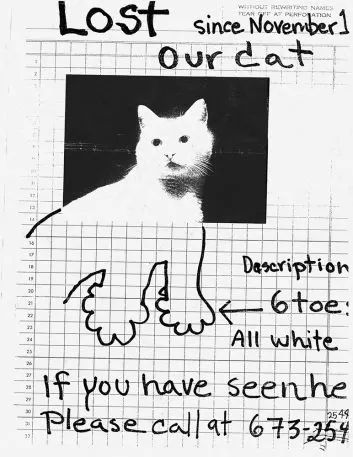 WITHOUT REWRITING NAMES
TEAR OFF AT PERFORATION
Lost since November 1
our cat
Description
6 toe:
All white
If you have seen he
Please call at 673-254
2549